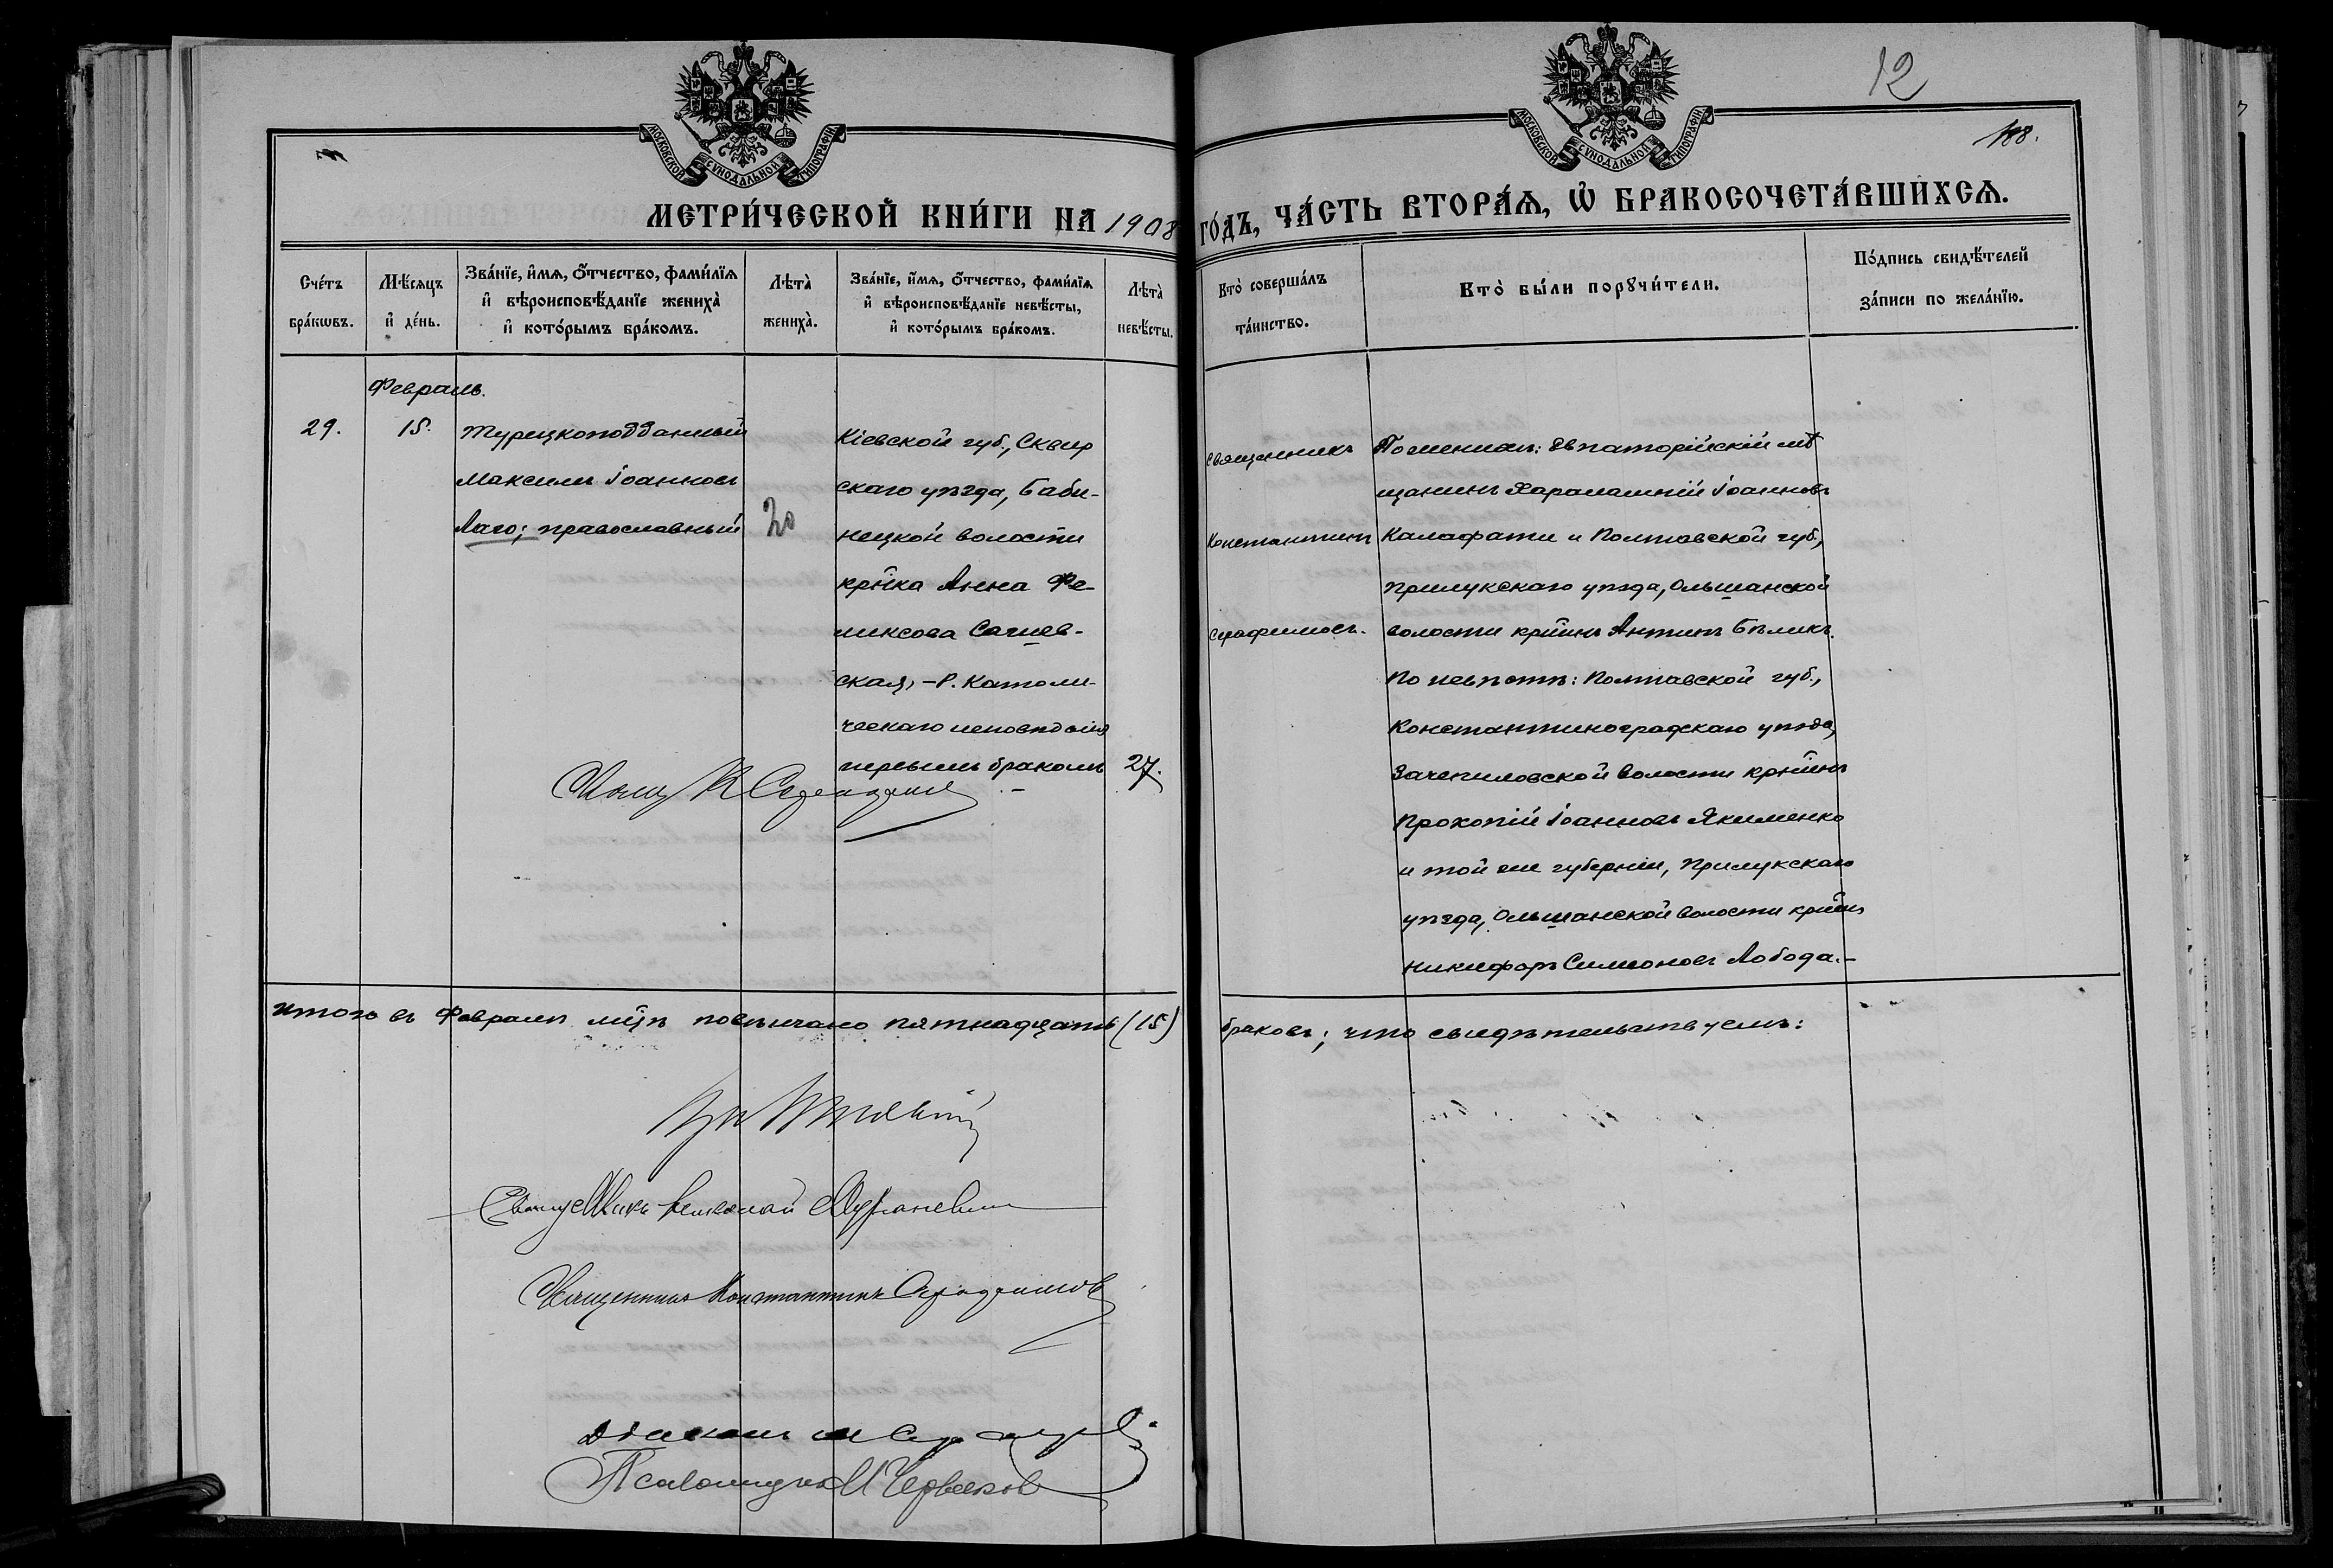 12
188.
МОСКОВСКОЙ СѴНОДАЛЬНОЙ ТИПОГРАФІИ
МОСКОВСКОЙ СѴНОДАЛЬНОЙ ТИПОГРАФІИ
МЕТРИ́ЧЕСКОЙ КНИ́ГИ НА 1908 ГО́ДЪ, ЧА́СТЬ ВТОРА́Ѧ, Ѽ БРАКОСОЧЕТА́ВШИХСѦ.
Сче́тъ
бра́кѡвъ.
Мѣ́сяцъ
и҆ де́нь.
Зва́нїе, и҆́мѧ, ѻ҆́тчество, фами́лїѧ
и҆ вѣроисповѣ́данїе жениха̀
и҆ кото́рымъ бра́комъ.
Лѣта̀
жениха̀.
Зва́нїе, и҆́мѧ, ѻ҆́тчество, фами́лїѧ
и҆ вѣроисповѣ́данїе невѣ́сты,
и҆ кото́рымъ бра́комъ.
Лѣта̀
невѣ́сты.
Кто̀ соверша́лъ
та́инство.
Кто̀ бы́ли порꙋчи́тели.
По́дпись свидѣ́телей
за́писи по жела́нїю.
Февраль.
29.
15.
Турецкоподданный
Максимъ Іоанновъ
Лаго; православный
20
Кіевской губ., Сквир
скаго уѣзда, Баби-
нецкой волости
кр̃нка Анна Фе-
ликсова Сачев-
ская, – Р. Католи-
ческаго исповѣданія
первымъ бракомъ
27.
Священникъ
Константинъ
Серафимовъ.
По женихѣ: Евпаторійскій мѣ
щанинъ Харалампій Іоанновъ
Калафати и Полтавской губ.,
Прилукскаго уѣзда, Ольшанской
волости кр̃нинъ Антипъ Бѣликъ.
По невѣстѣ: Полтавской губ.,
Константиноградскаго уѣзда,
Зачепиловской волости кр̃нинъ
Прокопій Іоанновъ Якименко
и той же губерніи, Прилукскаго
уѣзда, Ольшанской волости кр̃нинъ
Никифоръ Симеоновъ Лобода.–
Свящ. К Серафимов
Итого въ Февралѣ мцѣ повѣнчано пятнадцать (15) браковъ; что свидѣтельствуемъ:
Священникъ Николай
Священникъ Константинъ Серафимовъ
Діаконъ
Псаломщикъ И Червяков